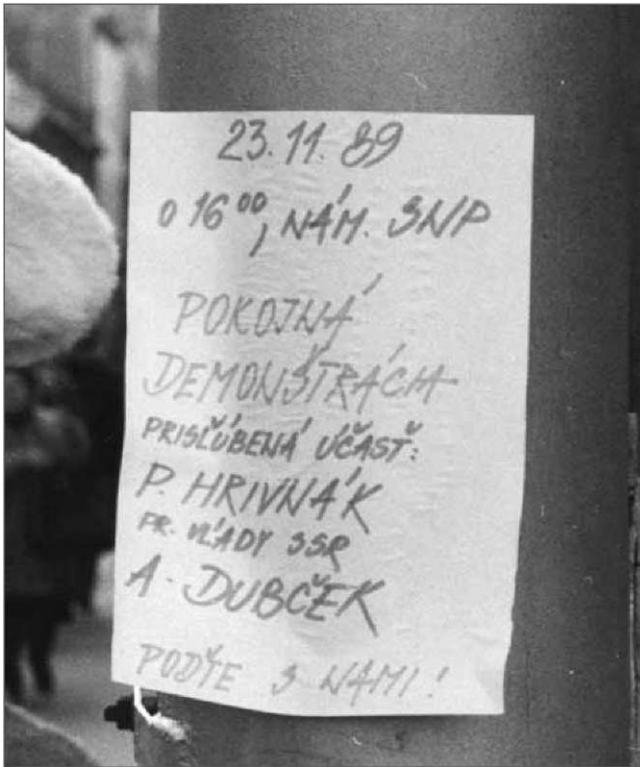 23.11.89
O 16⁰⁰, NÁM. SNP
POKOJNÁ
DEMONŠTRÁCIA
PRISĽÚBENÁ ÚČASŤ:
P. HRIVNÁK
PR. VLÁDY SSR
A. DUBČEK
POĎTE S NAMI!